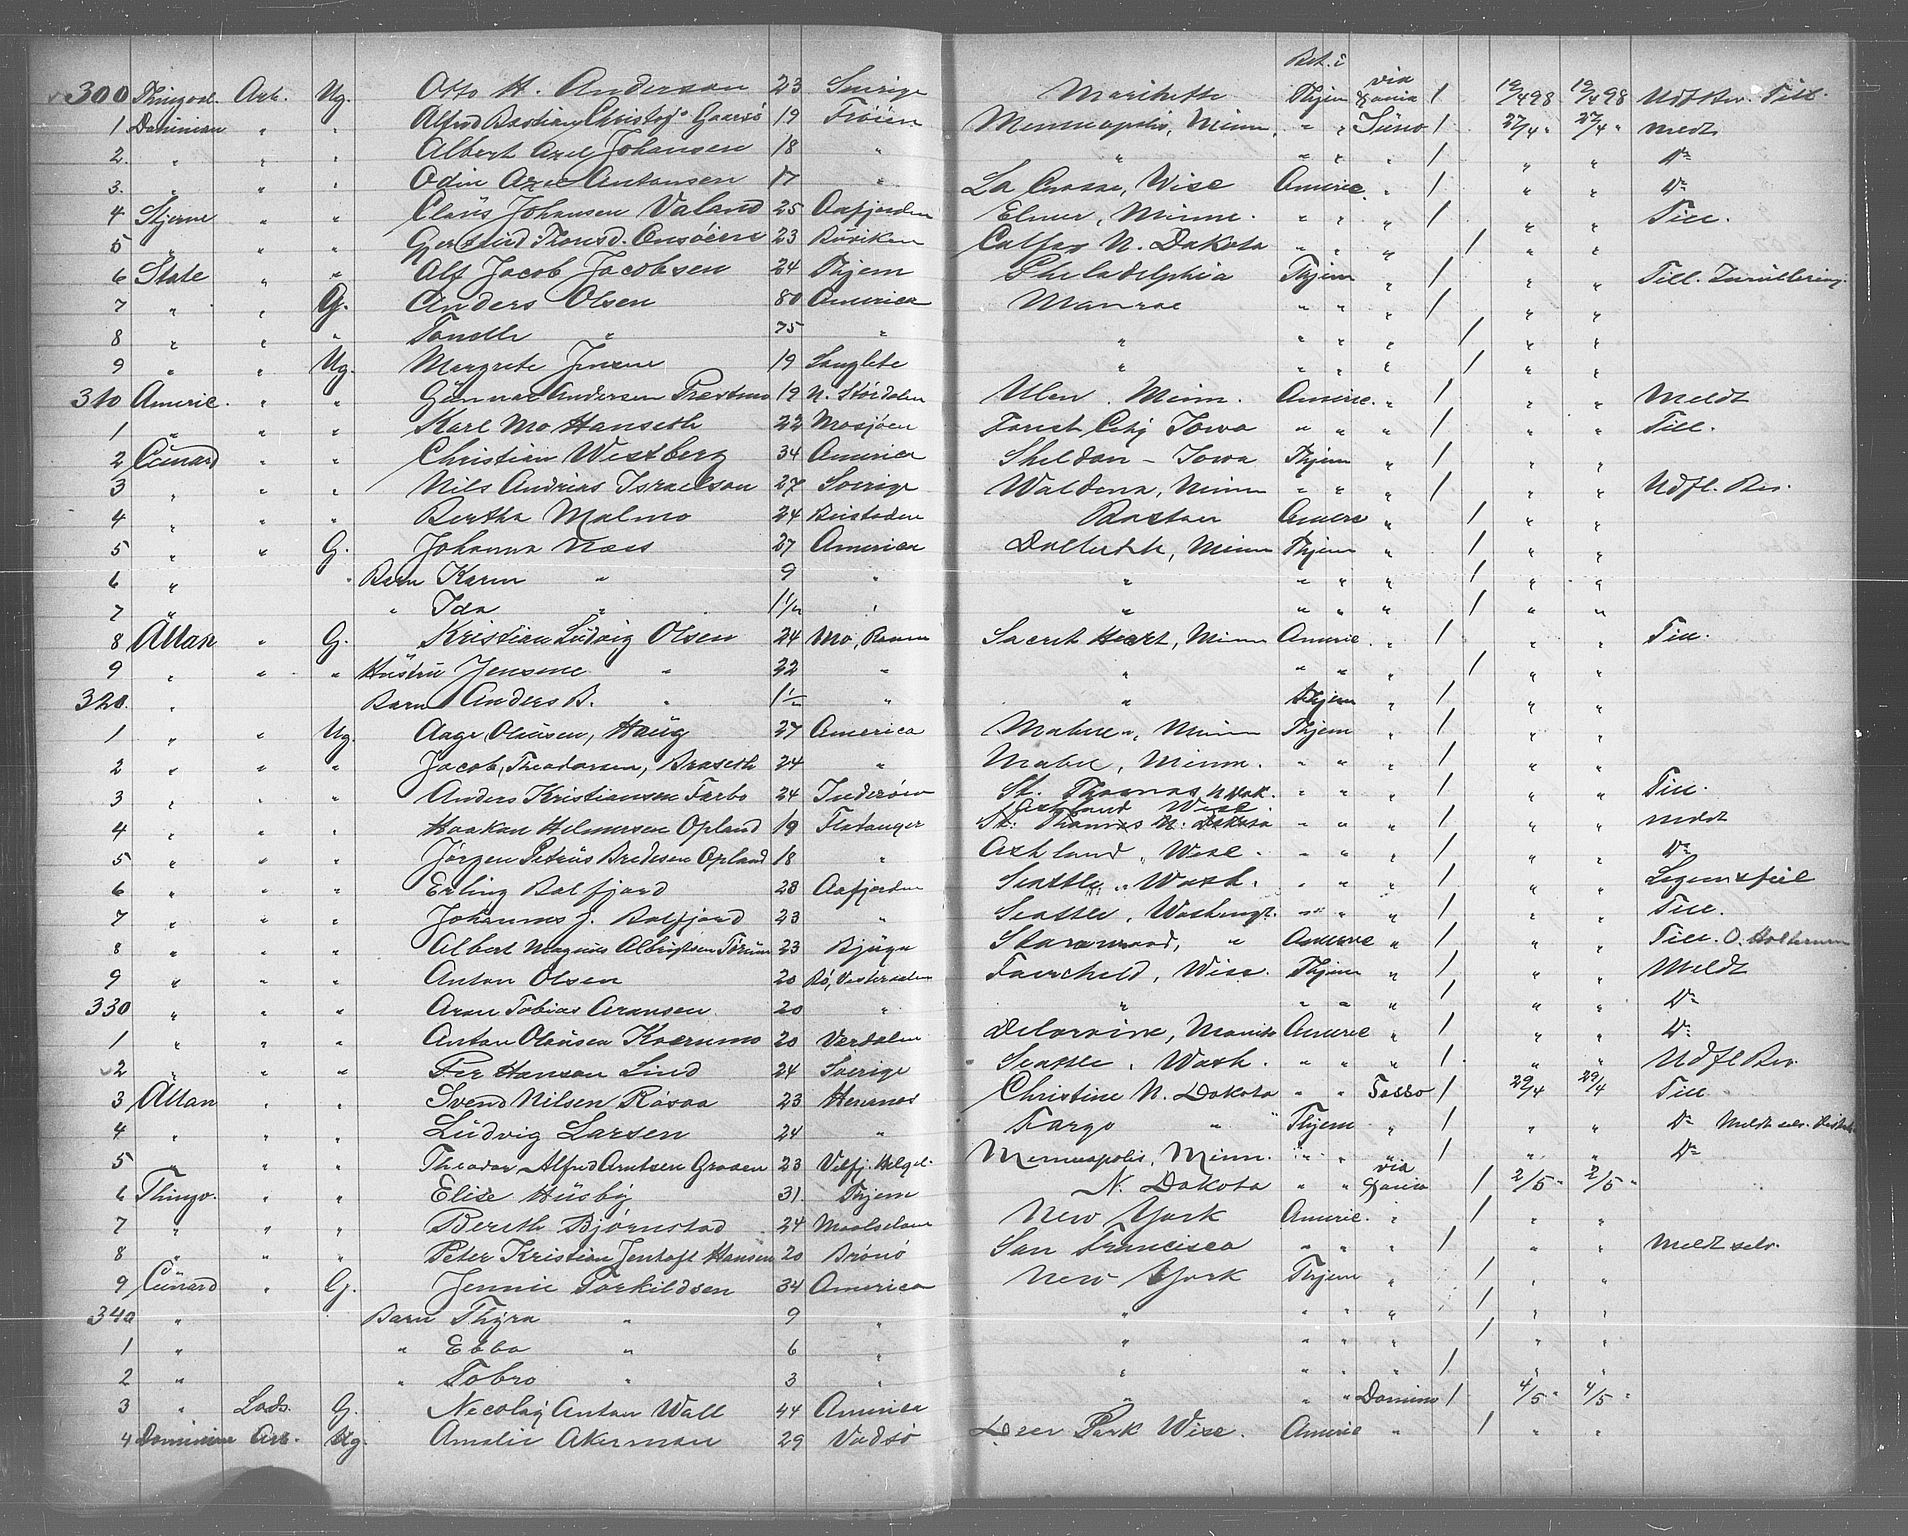 Bet. i
300 Thingval. Arb. Ug. Otto H. Anderson 23 Sverige Marihette Thjem via Gavia / 19/4 98 19/4 98 Udf Bev. Till.
1 Dominion " " Alfred Bastian Christof. 19 Frøien Minneapolis, Minn. " " Juno / 27/4 " 27/4 " Meldt
2 " " " Albert Axel Johansen 18 " " " " " / " " Do
3. " " " Odin Axel Antonsen 17 " La Crosse, Wisc Americ. " / " " Do
4 Stjerne " " Claus Johansen Valand 25 Aafjorden Elmer, Minn. " " " / " " Till.
5 " " " 23 Buviken Colfax N. Dakota " " " / " "
6 State " " Alf Jacob Jacobsen 24 Thjem Philadelphia Thjem " / " " Till.
7 " " G. Anders Olsen 80 America Monroe " " " / " "
8 " " " " 75 " " " " " / " "
9 " " Ug. Margrete Jensen 19 " " " " / " "
310 Americ. " " Gunnar Andersen 19 N. Stördalen Ulen. Minn. Americ. " / " " Meldt
1 " " " Karl Mo Hanseth 22 Mosjøen Forest City Iowa " " " / " " Till.
2 Cunard " " Christian Westberg 34 America Sheldon - Iowa Thjem " / " "
3 " " " Nils Andrias Israelson 27 Sverige Waldena, Minn " " " / " " Udfl. Bev.
4 " " " Bertha Malmo 24 Beistaden Boston Americ " / " "
5 " " G. Johanna Næss 37 America Minn Thjem " / " "
6 " " Barn Karen " 9 " " " " " / " "
7 " " Ida " 1 1/2 " " " " " / " "
8 Allan " G. Kristian Ludvig Olsen 24 Mo, Ranen Sacret Heart, Minn Americ. " / " " Till.
9 " " " Hustru Jensine " 22 " " " " " / " "
320. " Barn Anders B. " 1 1/2 " " Thjem " / " "
1 " " Ug. Aage Olausen, Haug 27 America Minn Thjem " / " "
2 " " " Jacob, Theodorsen, Braseth 24 " Mabel, Minn. " " " / " "
3 " " " Anders Kristiansen Farbo 24 Inderøen St. Thomas N Dak. " " " / " " Till.
4 " " " Haakan Helmersen Opland 19 Flatanger Ashland Wisc. St. Thomas N. Dakota " " " / " " Meldt
5 " " " Jørgen Petrus Bredesen Opland 18 " Ashland, Wisc. " " " / " " Do
6 " " " Erling Balfjord 28 Aafjorden Seattle, Wash. " " " / " "
7 " " " Johannes J. Balfjord 23 " Seattle, Washingt. " " " / " " Till.
8 " " " Albert Magnus Albrigtsen 23 Bjugn " Americ " / " " Till. O.
9 " " " Anton Olsen 20 Bø, Vesteraalen Fairchild, Wisc. Thjem " / " " Meldt
330 " " " Aron Tobias Aronsen. 20 " " " " " / " " Do
1 " " " Anton Olausen 20 Verdalen Deloraine, Manito Americ " / " " Do
2 " " " Per Hanson Lind 24 Sverige Seattle, Wash. " " " / " " Udfl Bev
3 Allan " " Svend Nilsen Røsaa 23 Henmnes Christine N. Dakota " " Tasso / 29/4 29/4 Till
4 " " " Ludvig Larsen 24 " Fargo " Thjem " / " " Do Meldt selv.
5 " " " Theodor Alfred Arntsen 23 Velfj. Helgel. Minneapolis, Minn. " " " / " " Do
6 Thingv. " " Elise Husby 31. Thjem N. Dakota " " via / 2/5 " 2/5 "
7 " " " Bereth Bjørnstad 24 Maalselven New York Americ. " / " "
8 " " " Peter Kristian Jentoft Hansen 20 Brønø San Francisco " " " / " " Meldt selv.
9 Cunard " G. Jennie Torkildsen 34 America New York Thjem " / " "
340 " Barn Thyra " 9 " " " " " / " "
1 " " Ebba " 6 " " " " " / " "
2 " " Tobro " 3 " " " " " / " "
3 " Lods. G. Necolay Anton Wall 44 America " " " Domino / 4/5 " 4/5 "
4 Dominion Arb. Ug. Amalie Akerman 29 Vadsø Deer Park Wisc. Americ " / " "